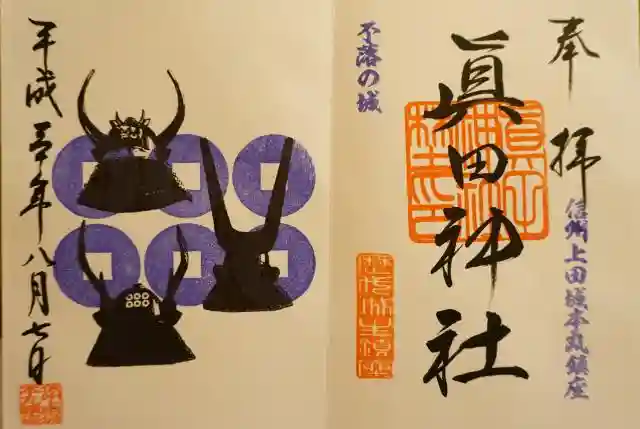 奉拝
信州上田城本丸鎮座
眞田神社
不落の城
平成三十年八月七日